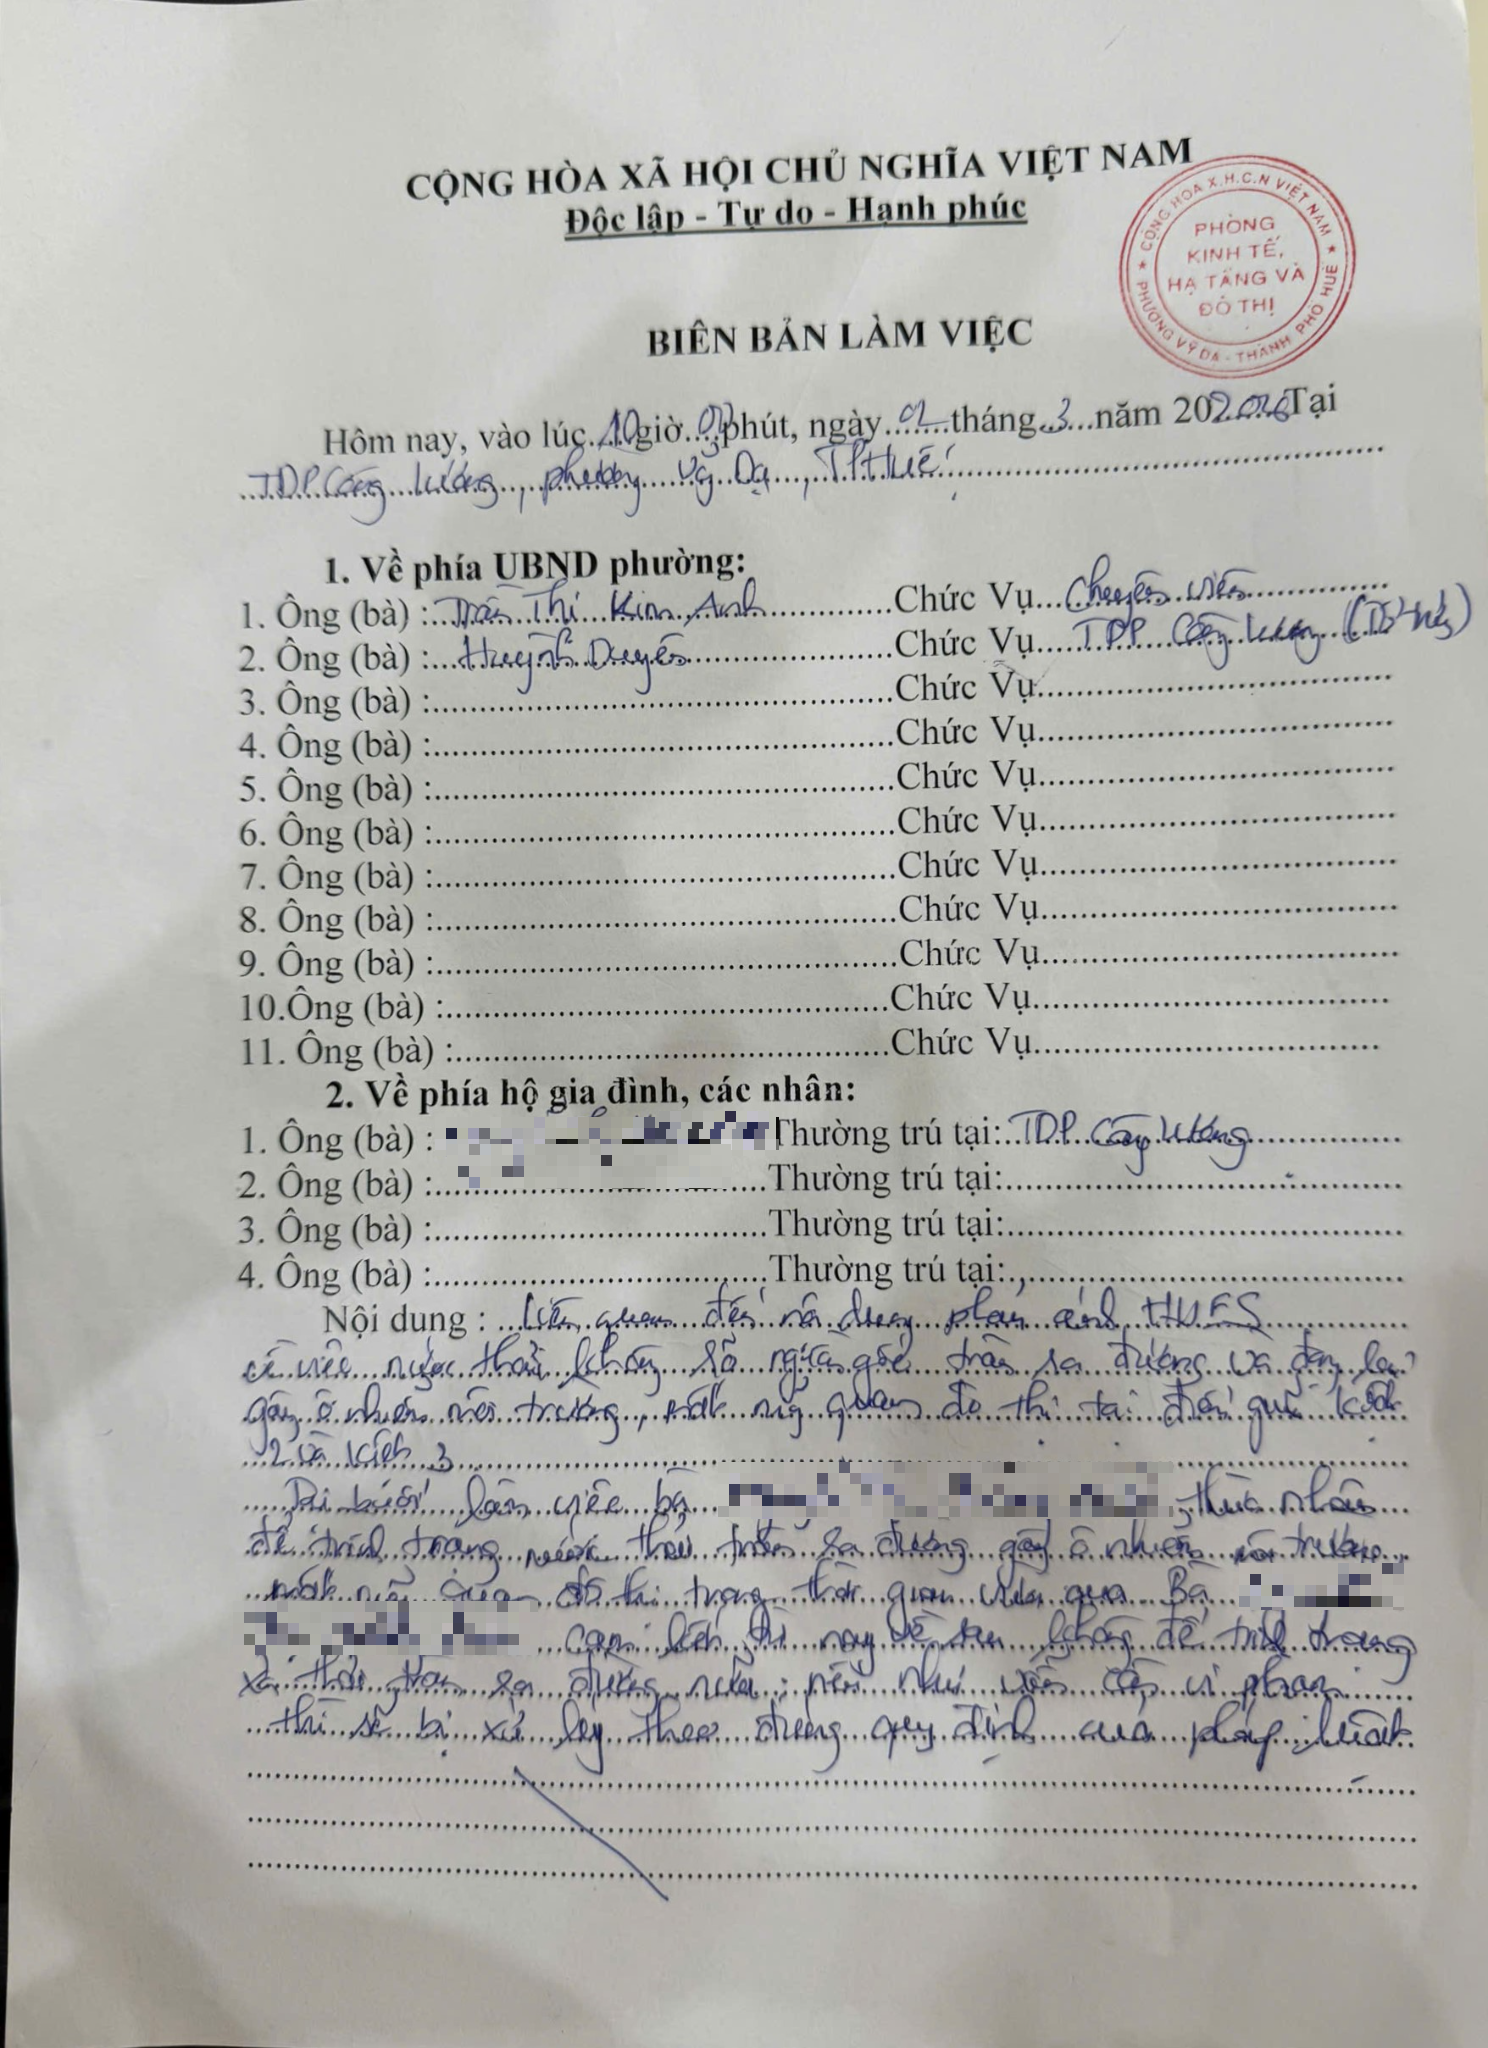 CỘNG HÒA XÃ HỘI CHỦ NGHĨA VIỆT NAM
Độc lập - Tự do - Hạnh phúc
CỘNG HÒA X.H.C.N VIỆT NAM
PHÒNG
KINH TẾ,
HẠ TẦNG VÀ
ĐÔ THỊ
PHƯỜNG VỸ DẠ - THÀNH PHỐ HUẾ
BIÊN BẢN LÀM VIỆC
Hôm nay, vào lúc 10 giờ phút, ngày 02 tháng 3 năm 202026 Tại
TDP Công Lương, phường Vỹ Dạ, TP Huế
1. Về phía UBND phường:
1. Ông (bà) : Trần Thị Kim Anh Chức Vụ Chuyên viên
2. Ông (bà) : Huỳnh Duyên Chức Vụ TDP Công Lương
3. Ông (bà) : Chức Vụ
4. Ông (bà) : Chức Vụ
5. Ông (bà) : Chức Vụ
6. Ông (bà) : Chức Vụ
7. Ông (bà) : Chức Vụ
8. Ông (bà) : Chức Vụ
9. Ông (bà) : Chức Vụ
10.Ông (bà) : Chức Vụ
11. Ông (bà) : Chức Vụ
2. Về phía hộ gia đình, các nhân:
1. Ông (bà) : Thường trú tại: TDP Công Lương
2. Ông (bà) : Thường trú tại:
3. Ông (bà) : Thường trú tại:
4. Ông (bà) : Thường trú tại:
Nội dung : Liên quan đến nội dung phản ánh HUES
về việc nước thải tràn ra đường và
gây ô nhiễm môi trường, mất mỹ quan đô thị tại
2 và kiệt 3
Tại buổi làm việc bà thừa nhận
để tình trạng nước thải tràn ra đường gây ô nhiễm môi trường,
mất mỹ quan đô thị trong thời gian vừa qua. Bà
cam kết từ nay về sau không để tình trạng
xả thải tràn ra đường nữa, nếu như vẫn còn vi phạm
thì sẽ bị xử lý theo đúng quy định của pháp luật